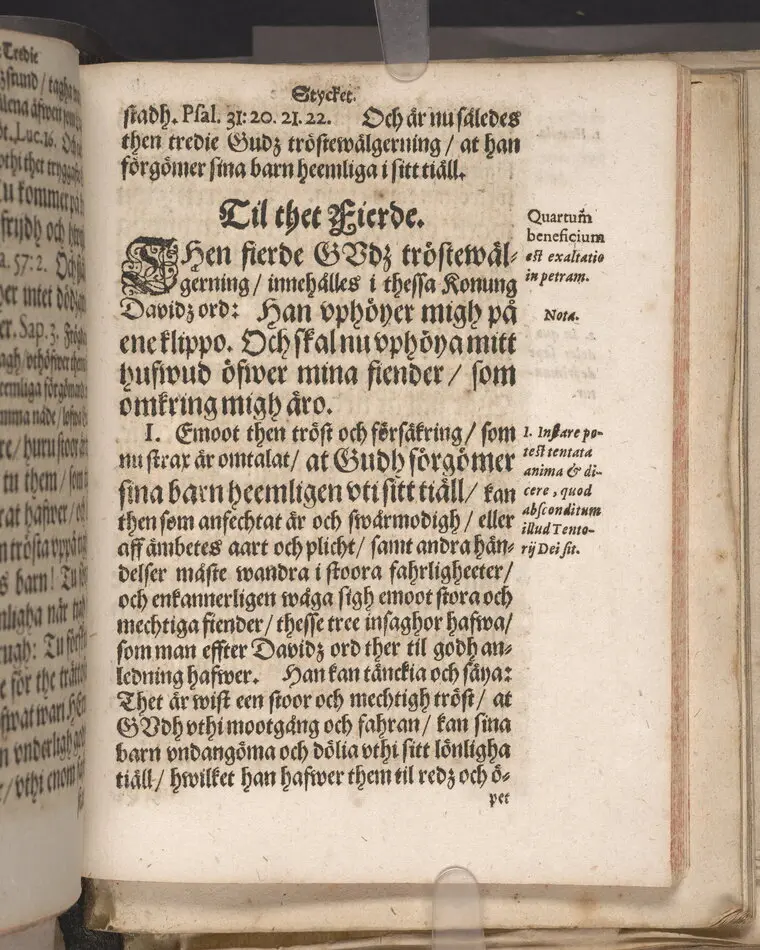 Stycket.
stadh. Psal. 31: 20. 21. 22. Och är nu således
then tredie Gudz tröstewälgerning / at han
förgömer sina barn heemliga i sitt tiäll.
Til thet Fierde.
THen fierde GVdz tröstewäl-
gerning / innehålles i thessa Konung
Davidz ord: Han vphöyer migh på
ene klippo. Och skal nu vphöya mitt
hufwud öfwer mina fiender / som
omkring migh äro.
I. Emoot then tröst och försäkring / som
nu strax är omtalat / at Gudh förgömer
sina barn heemligen vti sitt tiäll / kan
then som anfechtat är och swårmodigh / eller
aff ämbetes aart och plicht / samt andra hän-
delser måste wandra i stoora fahrligheeter /
och enkannerligen wåga sigh emoot stora och
mechtiga fiender / thesse tree insaghor hafwa /
som man effter Davidz ord ther til godh an-
ledning hafwer. Han kan tänckia och säya:
Thet är wist een stoor och mechtigh tröst / at
GVdh vthi mootgång och fahran / kan sina
barn vndangöma och dölia vthi sitt lönligha
tiäll / hwilket han hafwer them til redz och ö-
pet
Quartum̃
beneficium
est exaltatio
in petram.
Nota.
1. Instare po-
test tentata
anima & di-
cere, quod
absconditum
illud Tento-
rij Dei sit.
Tredie
Luc. 16.
tu kommer
frijdh och
57: 2.
Sap. 3.
nåde /
huru stoor
tu them / som
hafwer /
trösta
barn! Tu
när
Tu
för the
vnderligh
vthi enom